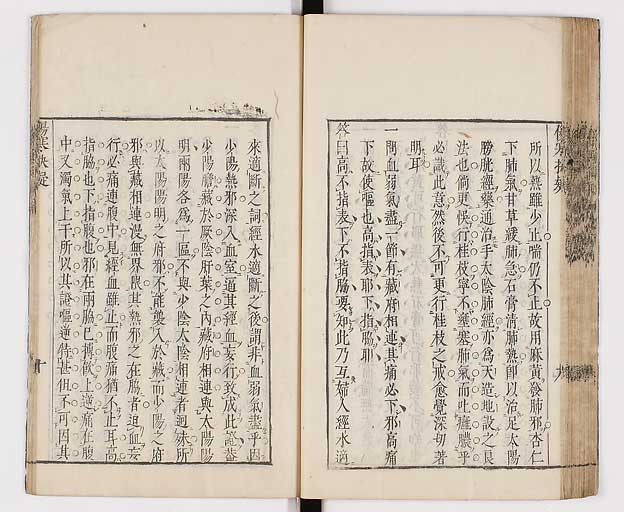 所以熱雖少止喘仍不止故用麻黃發肺邪杏仁
下肺氣甘草緩肺急石膏清肺熱卽以治足太陽
膀胱經藥通治手太陰肺經亦爲天造地設之良
法也倘更悞行桂枝寧不壅塞肺氣而吐癰膿乎
必識此意然後不可更行桂枝之戒愈覺深切著
明耳
一問血弱氣盡一節有藏府相連其痛必下邪高痛
下故使嘔也高指表耶下指脇耶
答曰高不指表下不指脇要知此乃互婦人經水適
來適斷之詞經水適斷之後謂非血弱氣盡乎因
少陽熱邪深入血室逼其經血妄行致成此證蓋
少陽膽藏於厥陰肝葉之內藏府相連與太陽陽
明兩陽各爲一區不與少陰太陰相連者迥殊所
以太陽陽明之府邪不能襲入於藏而少陽之府
邪與藏相連漫無界限其熱邪之在脇者迫血妄
行必痛連腹中見經血雖止而腹痛猶不止耳高
指脇也下指腹也邪在兩脇已搏飲上逆痛在腹
中又濁氣上干所以其證嘔逆特甚但不可因其
傷寒抉疑
十